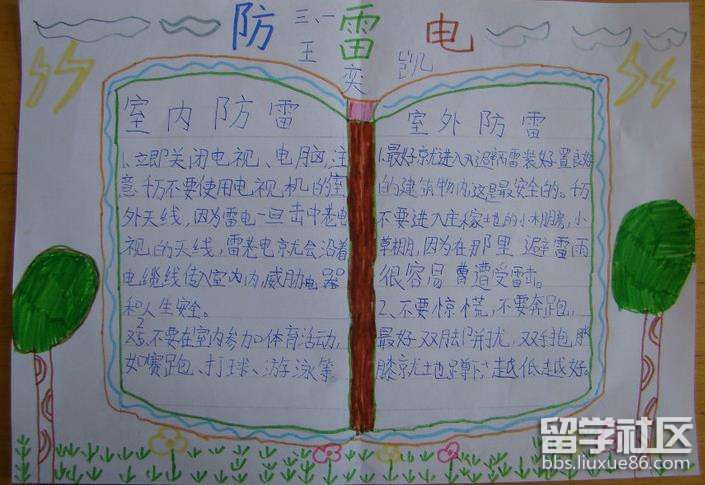 防雷电
三、一
王
奕
凯
室内防雷
1、立即关闭电视、电脑,注
意千万不要使用电视机的室
外天线,因为雷电一旦击中电
视的天线,雷电就会沿着
电缆线传入室内,威胁电器
和人生安全。
2、不要在室内参加体育活动,
如赛跑、打球、游泳等
室外防雷
1、最好就进入避雷装置良好
的建筑物内,这是最安全的。千万
不要进入庄稼地的小木棚房,小
草棚,因为在那里避雷雨
很容易遭受雷击。
2、不要惊慌,不要奔跑,
最好双脚并拢,双手抱膝
膝就地蹲下,越低越好。
留学社区
bbs.liuxue86.com